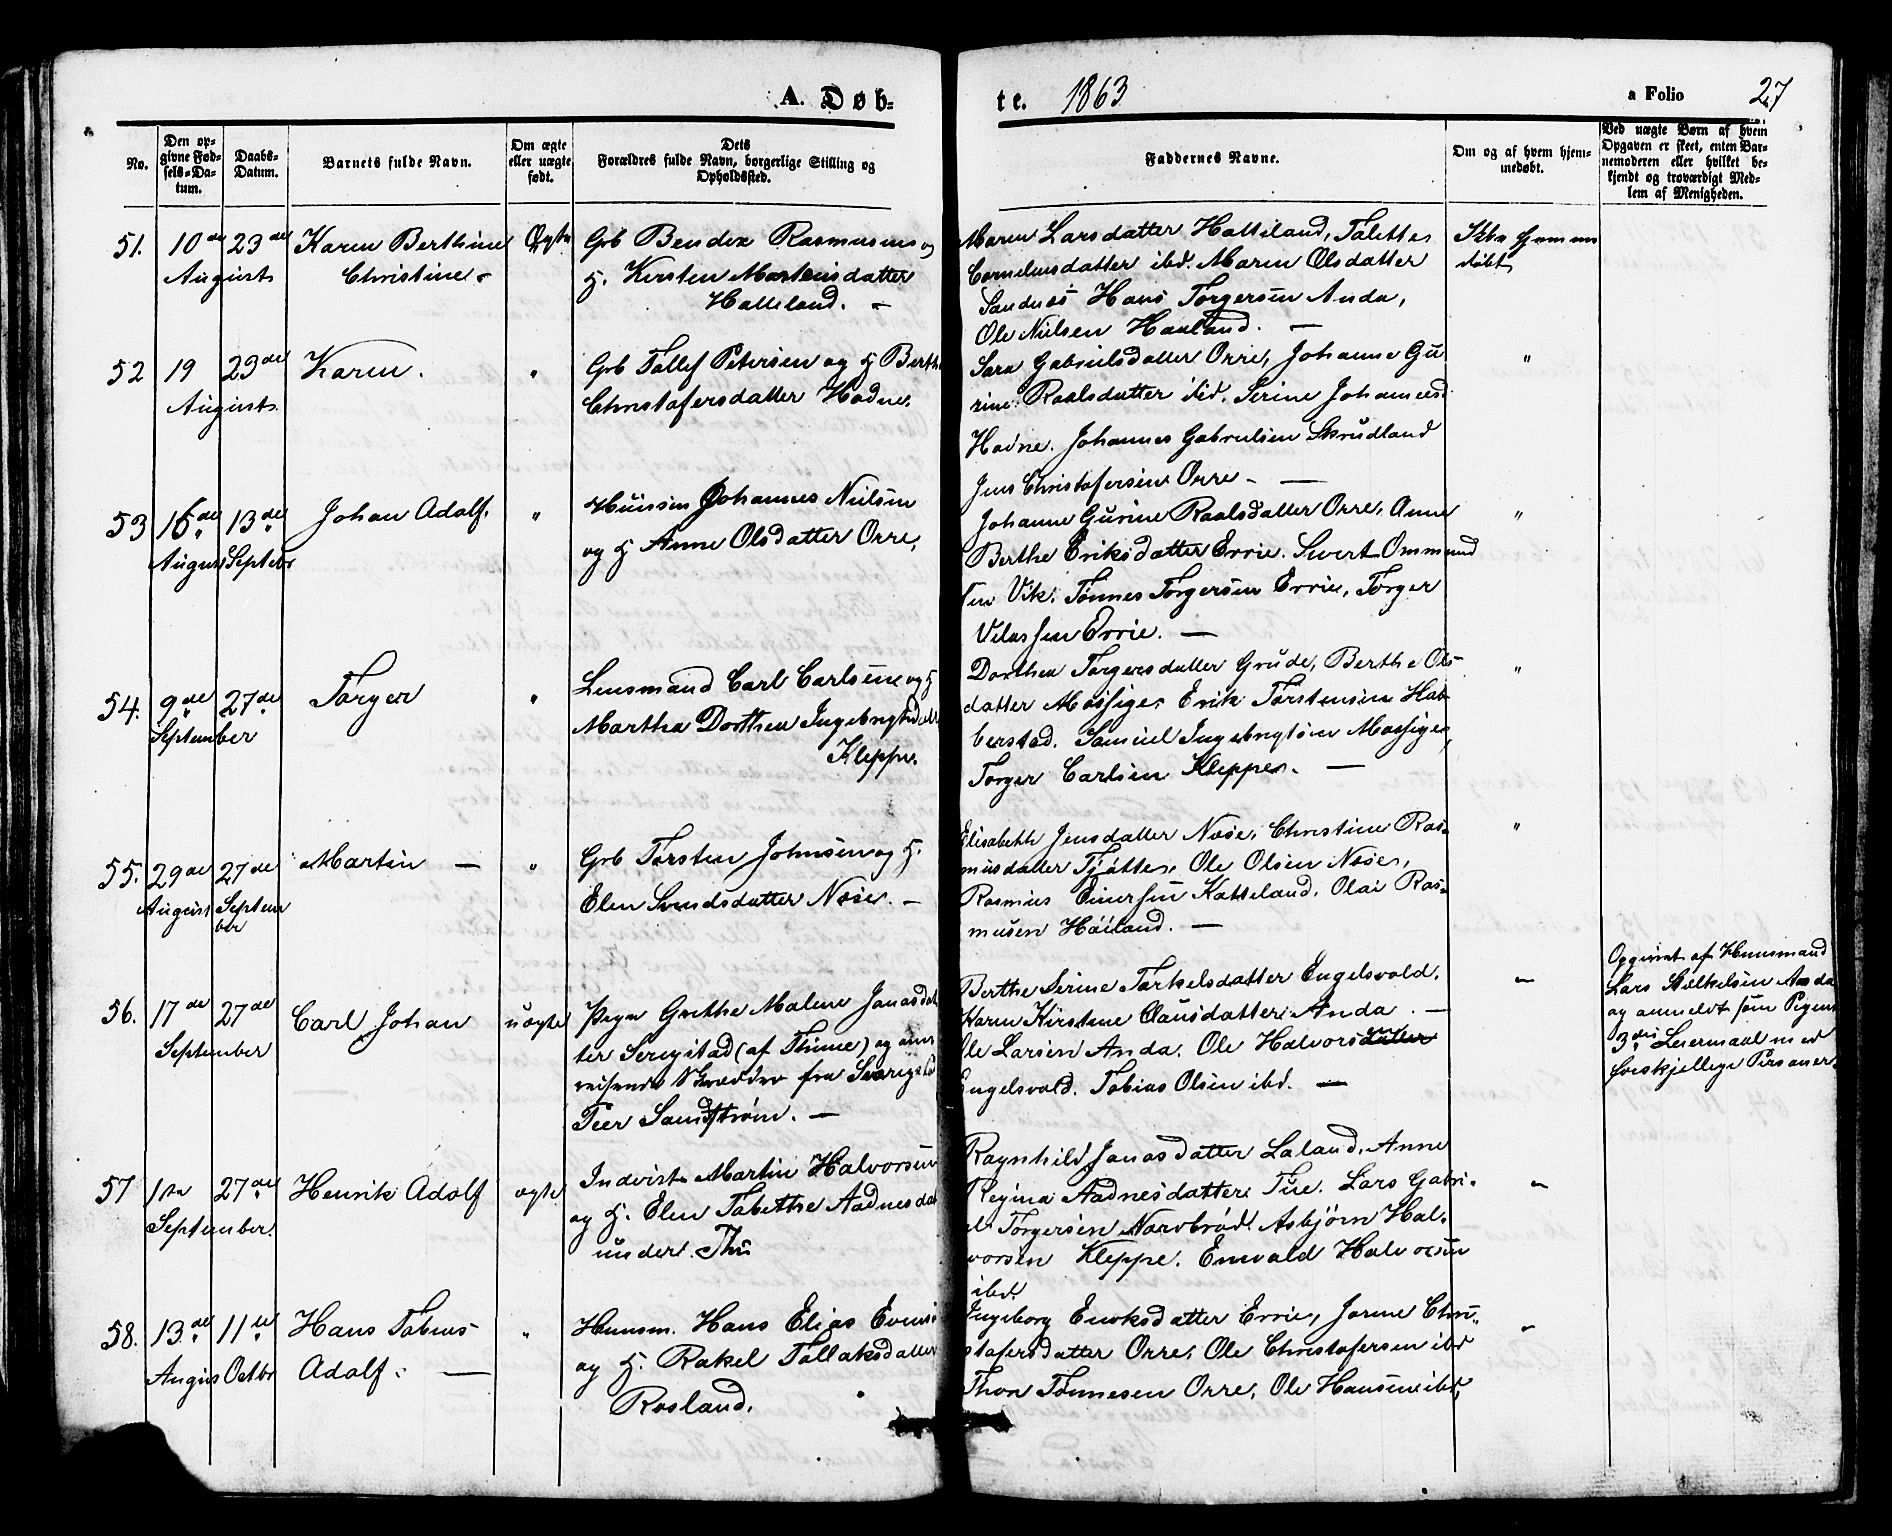 A. Døb-
te. 1863
a Folio 27
No.
Den op-
givne Fød-
sels-Da-
tum.
Daabs-
Datum.
Barnets fulde Navn.
Om ægte
eller uægte
født.
Dets
Forældres fulde Navn, borgerlige Stilling og
Opholdssted.
Faddernes Navne.
Om og af hvem hjem-
medøbt.
Ved uægte Børn af hvem
Opgaven er skeet, enten Bar-
nemoderen eller hvilket be-
kjendt og troværdigt Med-
lem af Menigheden.
51.
10de
August
23de
Karen Berthine
Christine
Ægte
Grb Bendix Rasmussen og
H. Kirsten Martensdatter
Hatteland.
Maren Larsdatter Hatteland, Talette
Cornelusdatter ibd. Maren Olsdatter
Sandnes Hans Torgersen Anda,
Ole Nielsen Haaland. —
Ikke hjemme
døbt
52
19
August
23de
Karen.
"
Grb Tollef Petersen og H Berthe
Christofersdatter Hodne.
Sara Gabrielsdatter Orre, Johanne Gu
rine Raalsdatter ibid. Serine Johannesd
Hodne. Johannes Gabrielsen Skrudland
Jens Christofersen Orre. —
"
53
15de
August
13de
Septebr
Johan Adolf.
"
Huusm Johannes Nielsen
og H Anne Olsdatter Orre,
Johanne Gurine Raalsdatter Orre, Anne
Berthe Eriksdatter Errie. Sivert Ommund
sen Vik. Tønnes Torgersen Errie, Torger
Velassen Errie. —
"
54.
9de
September
27de
Torger
"
Lensmand Carl Carlsen og H
Martha Dorthea Ingebrigtsdatt
Kleppe.
Dorthea Torgersdatter Grude, Berthe Ols-
datter Mossige, Erik Torstensen Hab
berstad. Samuel Ingebrigtsen Mossige,
Torger Carlsen Kleppe. —
"
55.
29de
August
27de
Septem
ber
Martin —
"
Grb Torsten Johnsen og H.
Elen Svendsdatter Næse. —
Elisabeth Jensdatter Næse, Christine Ras-
musdatter Tjøtte, Ole Olsen Næse,
Rasmus Einersen Hatteland, Olai Ras-
musen Høiland. —
"
56.
17de
September
27de
Carl Johan
uægte
Pige Grethe Malene Jonasdat
ter Serigstad (af Thime) og om
reisende Skrædder fra Sverige
Peer Sandstrøm. —
Berthe Serine Torkelsdatter Engelsvold.
Karen Kirstine Clausdatter Anda —
Ole Larsen Anda. Ole Halvorsdatter
Engelsvold. Tobias Olsen ibd. —
"
Opgivet af Huusmand
Lars Anda
og anmeldt som Pigens
3die Leiermaal med
forskjellige Personer.
57
1ste
September.
27de
Henrik Adolf
ægte
Inderst Martin Halvorsen
og H. Elen Tabethe Aadnesdat
under Thu
Ragnhild Jonasdatter Laland, Anne
Regina Aadnesdatter Tue. Lars Gabri-
el Torgersen Nordbrød. Asbjørn Hal-
vorsen Kleppe. Enevald Halvorsen
ibd.
"
58.
13de
Augus
11te
Octbr
Hans Tobias
Adolf. —
"
Huusm. Hans Elias
og H. Rakel Tollaksdatter
Rosland.
Ingeborg Eriksdatter Errie, Jorine Chri-
stofersdatter Orre, Ole Christofersen ibd
Thor Tønnesen Orre, Ole Hansen ibd,
"